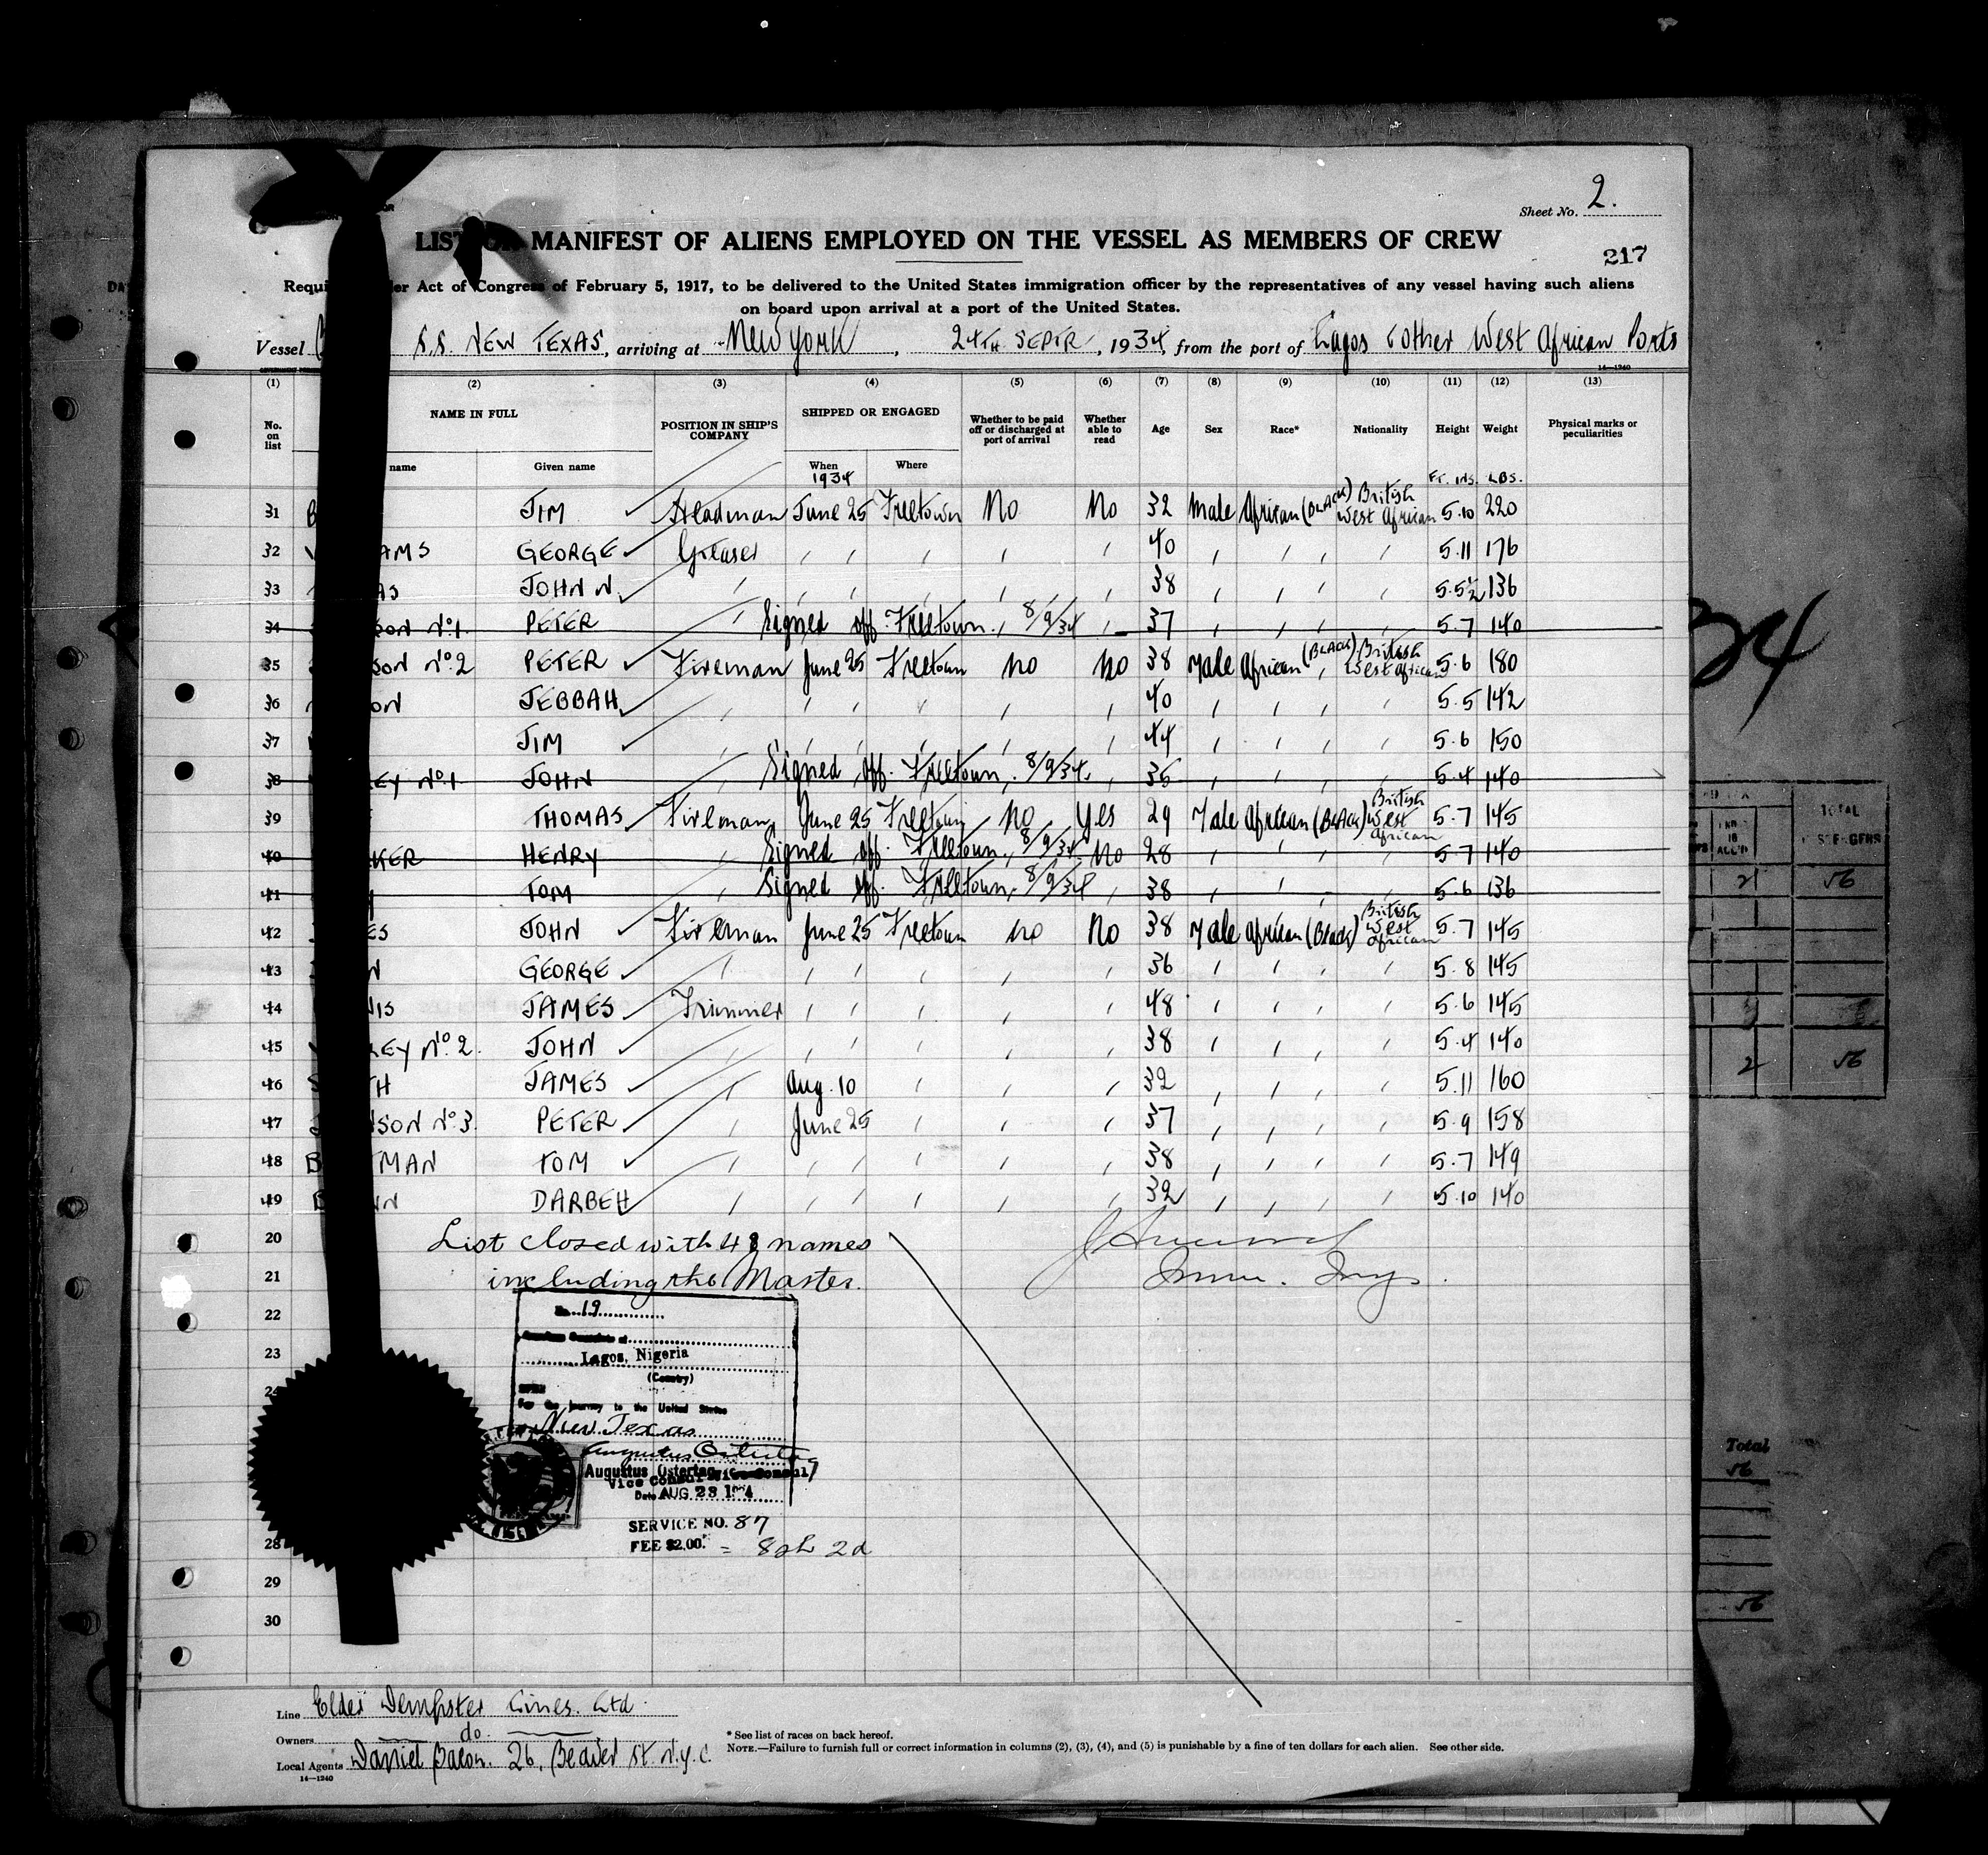 Sheet No. 2.
LIST MANIFEST OF ALIENS EMPLOYED ON THE VESSEL AS MEMBERS OF CREW
217
Requi er Act of Congress of February 5, 1917, to be delivered to the United States immigration officer by the representatives of any vessel having such aliens
on board upon arrival at a port of the United States.
Vessel S.S. NEW TEXAS, arriving at New York, 24TH SEPTR, 1934, from the port of Lagos & other West African Ports
14—1240
(1) (2) (3) (4) (5) (6) (7) (8) (9) (10) (11) (12) (13)
No. on list NAME IN FULL POSITION IN SHIP'S COMPANY SHIPPED OR ENGAGED Whether to be paid off or discharged at port of arrival Whether able to read Age Sex Race* Nationality Height Weight Physical marks or peculiarities
name Given name When Where
1934 FT. INS. LBS.
31 B JIM Headman June 25 Freetown No No 32 Male African (BLACK) British West African 5.10 220
32 AMS GEORGE Greaser 40 5.11 176
33 AS JOHN N. 38 5.5½ 136
34 SON No 1. PETER Signed off. Freetown. 8/9/34 37 5.7 140
35 SON No 2 PETER Fireman June 25 Freetown No No 38 Male African (BLACK) British West African 5.6 180
36 ON JEBBAH 40 5.5 142
37 JIM 44 5.6 150
38 EY No 1 JOHN Signed off. Freetown. 8/9/34. 35 5.4 140
39 THOMAS Fireman June 25 Freetown No Yes 29 Male African (BLACK) British West African 5.7 145
40 KER HENRY Signed off. Freetown. 8/9/34 No 28 5.7 140
41 TOM Signed off. Freetown. 8/9/34 38 5.6 136
42 ES JOHN Fireman June 25 Freetown No No 38 Male African (Black) British West African 5.7 145
43 N GEORGE 36 5.8 145
44 NIS JAMES Trimmer 48 5.6 145
45 LEY No 2. JOHN 38 5.4 140
46 S TH JAMES Aug. 10 32 5.11 160
47 NSON No 3. PETER June 25 37 5.9 158
48 B TMAN TOM 38 5.7 149
49 B WN DARBEH 32 5.10 140
20 List closed with 48 names
21 including the Master. Imm. Insp.
22
No. 19
23
Lagos, Nigeria
(Country)
24
For the journey to the United States
New Texas
Augustus Ostertag
Augustus Ostertag
Vice Consul
Date AUG 23 1934
SERVICE NO. 87
28 FEE $2.00. = 8sh 2d
29
30
Line Elder Dempster Lines. Ltd.
Owners do.
Local Agents Daniel Bacon. 26, Beaver St. N.Y.C.
14—1240
* See list of races on back hereof.
NOTE.—Failure to furnish full or correct information in columns (2), (3), (4), and (5) is punishable by a fine of ten dollars for each alien. See other side.
34
TOTAL
2 56
2 56
Total
56
56